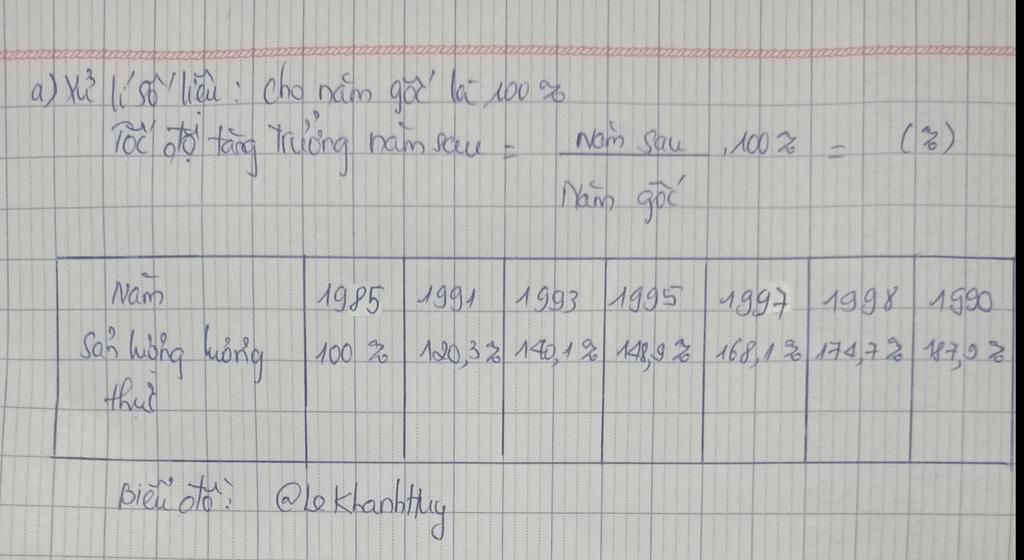 a) Xử lí số liệu : Cho năm gốc là 100 %
Tốc độ tăng trưởng năm sau = Năm sau / Năm gốc . 100 % = (%)
Năm 1985 1991 1993 1995 1997 1998 1990
Sản lượng lương thực 100 % 120,3 % 140,1 % 148,9 % 168,1 % 174,7 % 187,9 %
Biểu đồ : @LeKhanhHuy